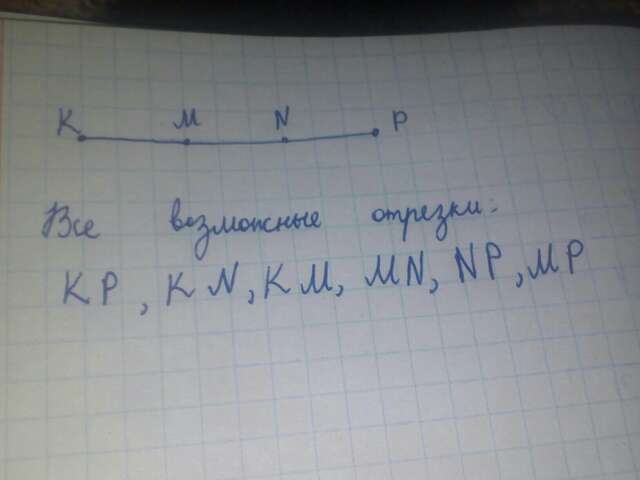 K M N P
Все возможные отрезки:
KP, KN, KM, MN, NP, MP